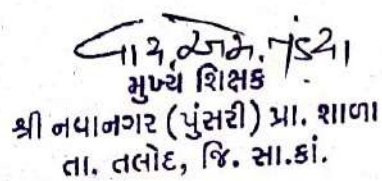 વાય. એમ. પંડયા
મુખ્ય શિક્ષક
શ્રી નવાનગર (પુંસરી) પ્રા. શાળા
તા. તલોદ, જિ. સા.કાં.